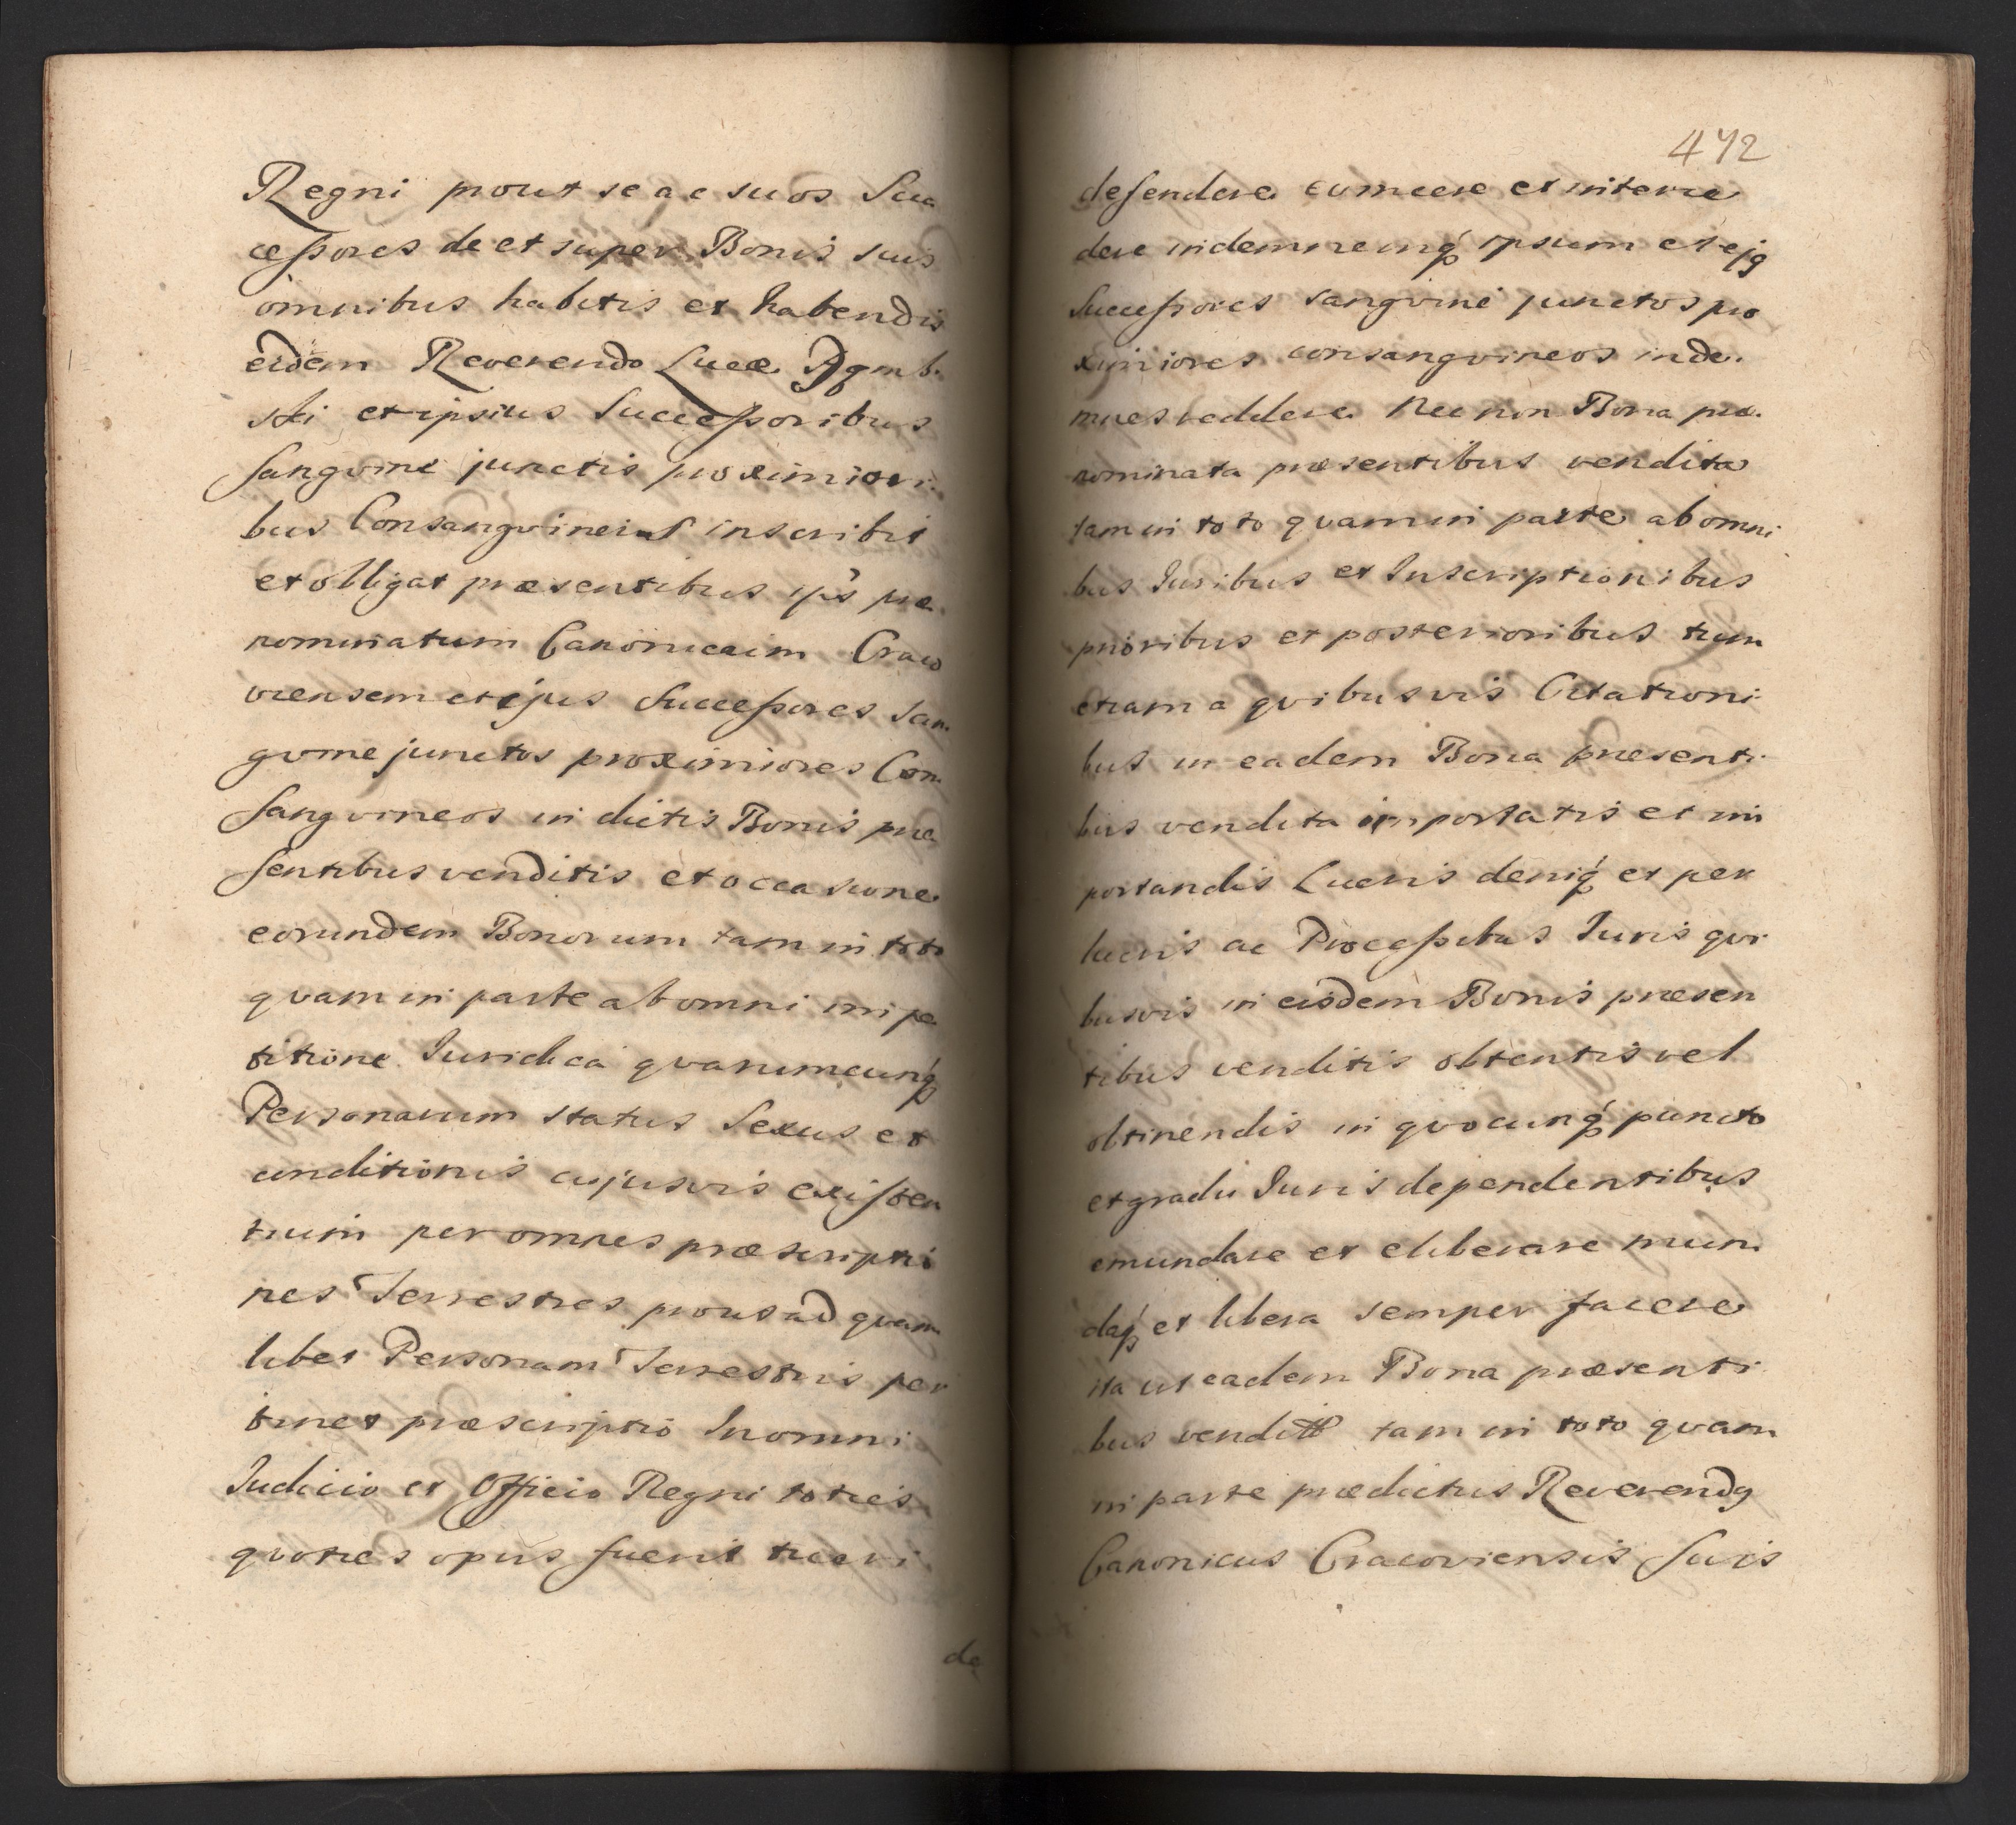 Regni prout se ac suos Suc
cessores de et super Bonis suis
omnibus habitis et habendis
eidem Reverendo Lucæ
ski et ipsius Successoribus
Sangvine junctis proximiori
bus Consangvineis inscribit
et obligat præsentibus ips præ
nominatum Canonicum Craco
viensem et ejus Successores San
gvine junctos proximiores Con
Sangvineos in dictis Bonis præ
Sentibus venditis et occasione
eorundem Bonorum tam in toto
qvam in parte ab omni impe
titione Iuridica qvarumcunq
Personarum status Sexus et
conditionis cujusvis existen
tium per omnes præscriptio
nes Terrestres prout ad qvam
libet Personam Terrestris per
tinet præscriptio In omni
Iudicio et Officio Regni toties
qvoties opus fuerit tueri
de
472
defendere evincere et interce
dere indemnemq ipsum et ejq
Successores sangvine junctos pro
ximiores consangvineos inde
mnes reddere Nec non Bona præ
nominata præsentibus vendita
tam in toto qvam in parte ab omni
bus Iuribus et Inscriptionibus
prioribus et posterioribus tum
etiam a qvibusvis Citationi
bus in eadem Bona præsenti
bus vendita importatis et im
portandis Lucris deniq et per
lucris ac Processibus Iuris qvi
busvis in eisdem Bonis præsen
tibus venditis obtentis vel
obtinendis in qvocunq puncto
et gradu Iuris dependentibus
emundare et eliberare mun
daq et libera semper facere
ita ut eadem Bona præsenti
bus vendita tam in toto qvam
in parte prædictus Reverendq
Canonicus Cracoviensis Suis